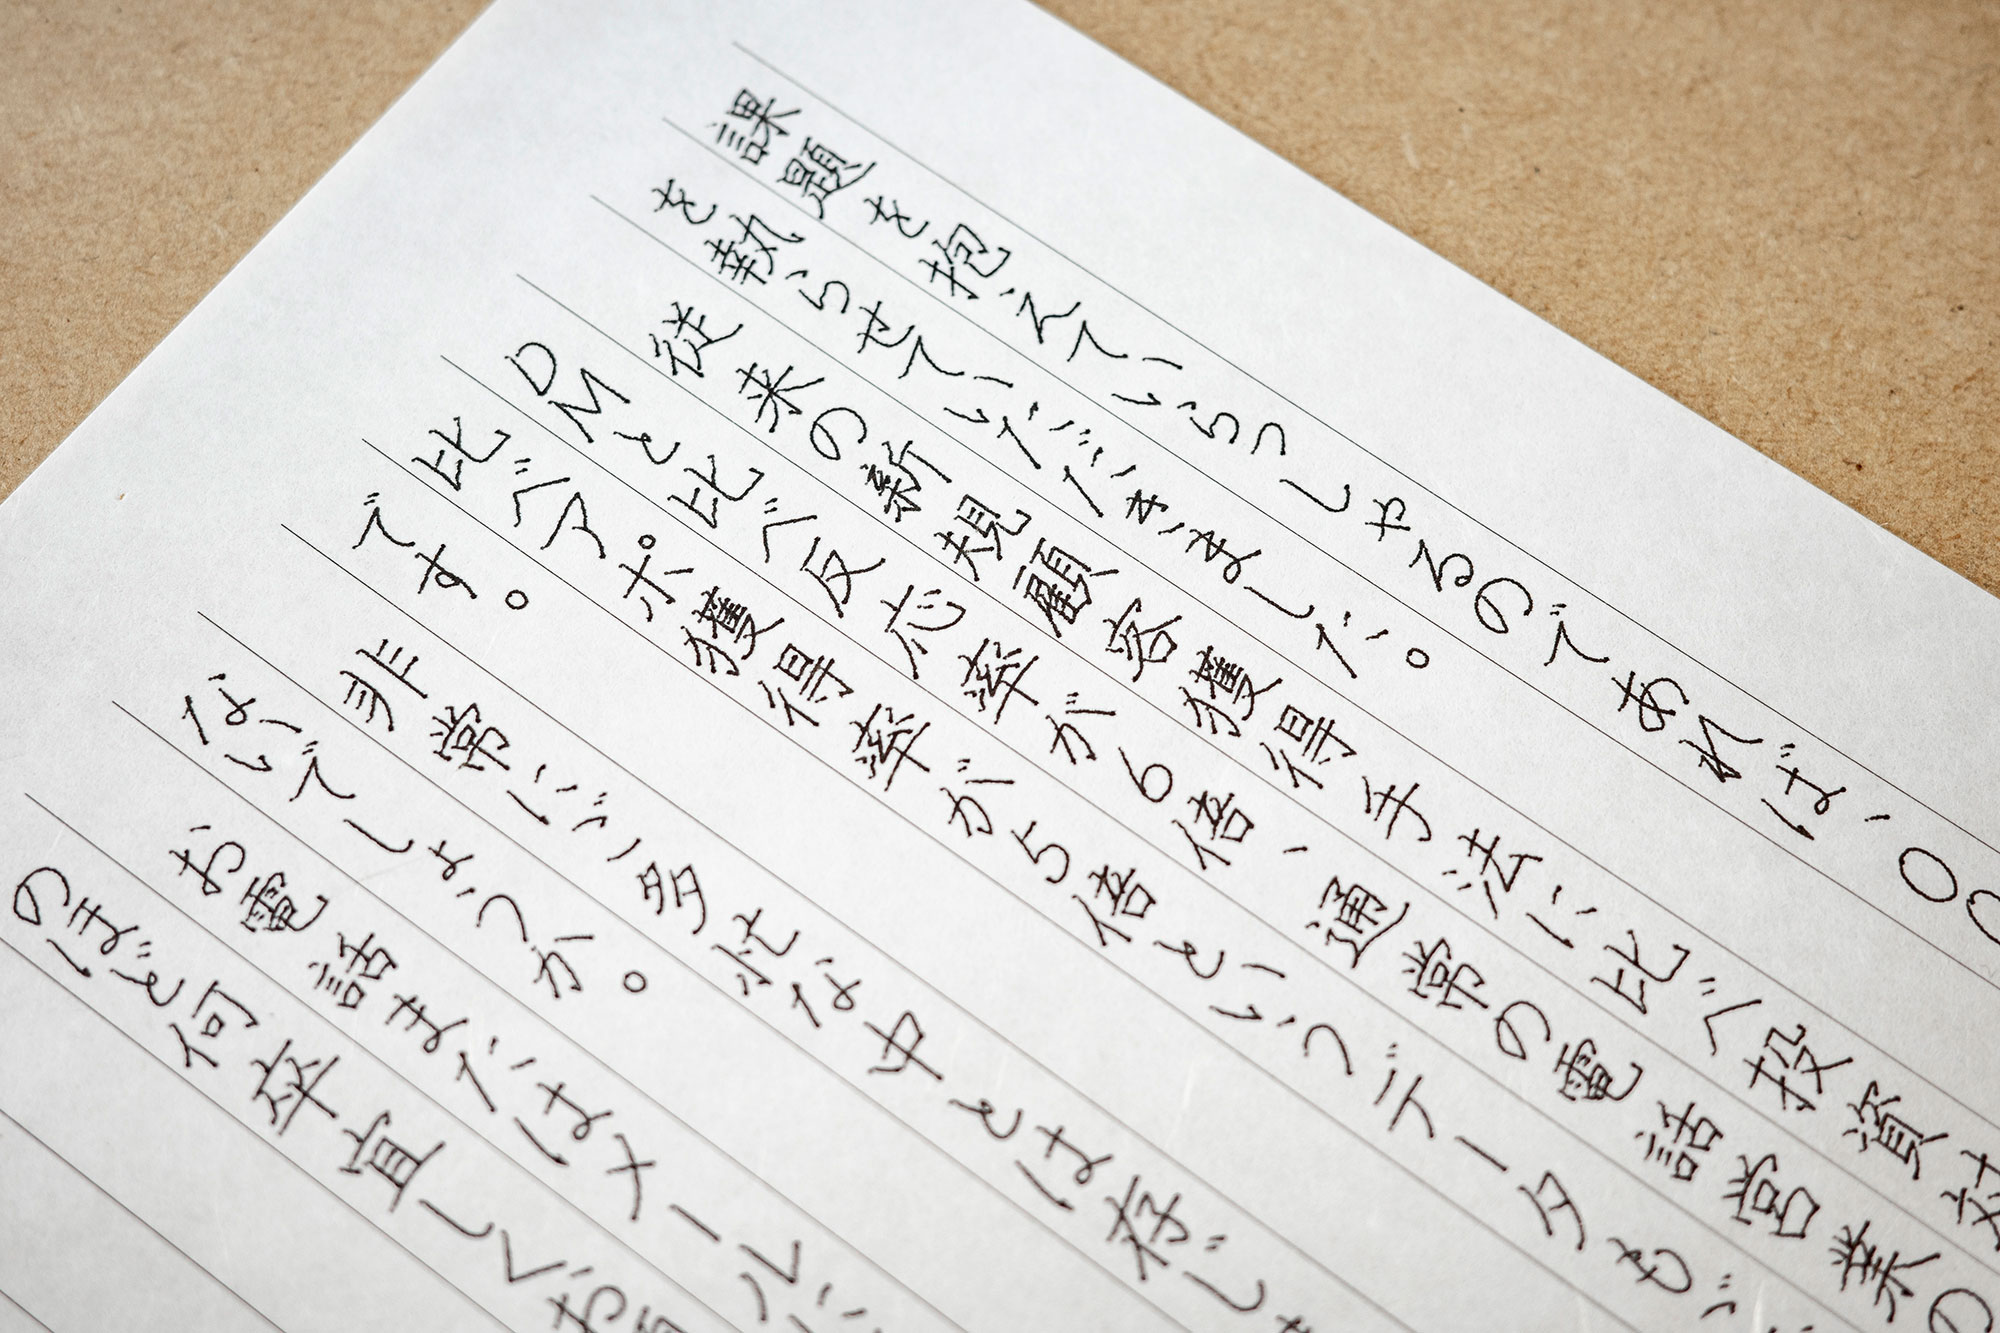 課題を抱えていらっしゃるのであれば、〇
を執らせていただきました。
従来の新規顧客獲得手法に比べ投資対
DMと比べ反応率が6倍、通常の電話営業の
比べアポ獲得率が5倍というデータもご
です。
非常にご多忙な中とは存じ
ないでしょうか。
お電話またはメールに
のほど何卒宜しくお